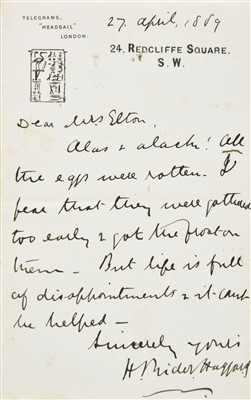 TELEGRAMS,
"HEADSAIL"
LONDON.
27 April, 1889
24, REDCLIFFE SQUARE,
S.W.
Dear Mrs Elton,
Alas & alack! All
the eggs were rotten. I
fear that they were gathered
too early & got the frost on
them – But life is full
of disappointments & it cant
be helped –
Sincerely yours
H. Rider Haggard